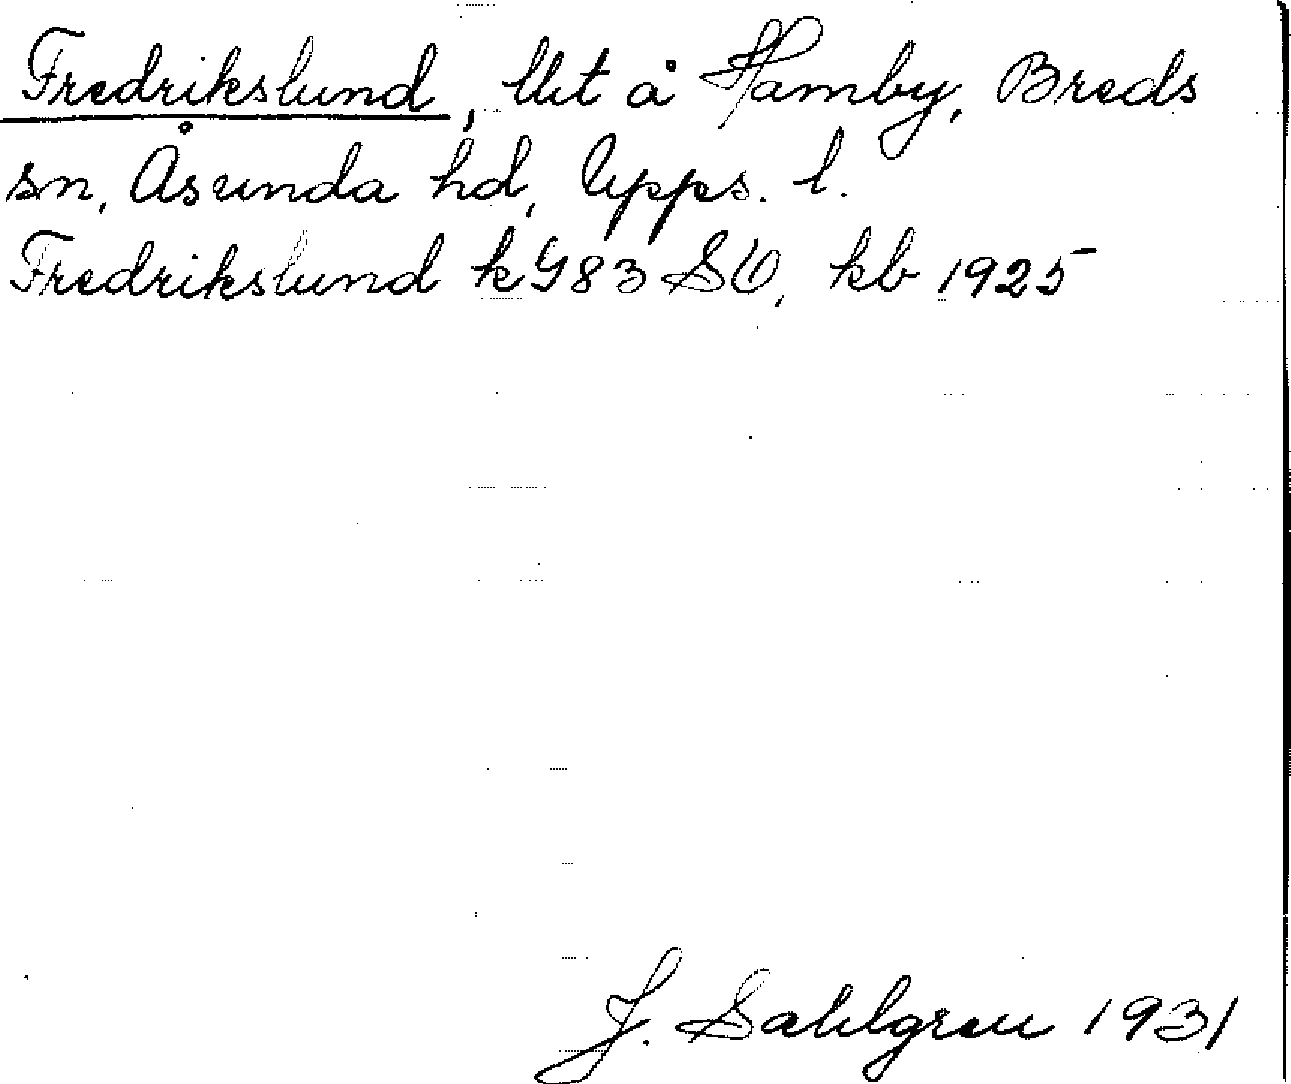 Fredrikslund, lht å Hamby, Breds
sn, Åsunda hd, Upps. l.
Fredrikslund k G83 SO, kb 1925
J. Sahlgren 1931